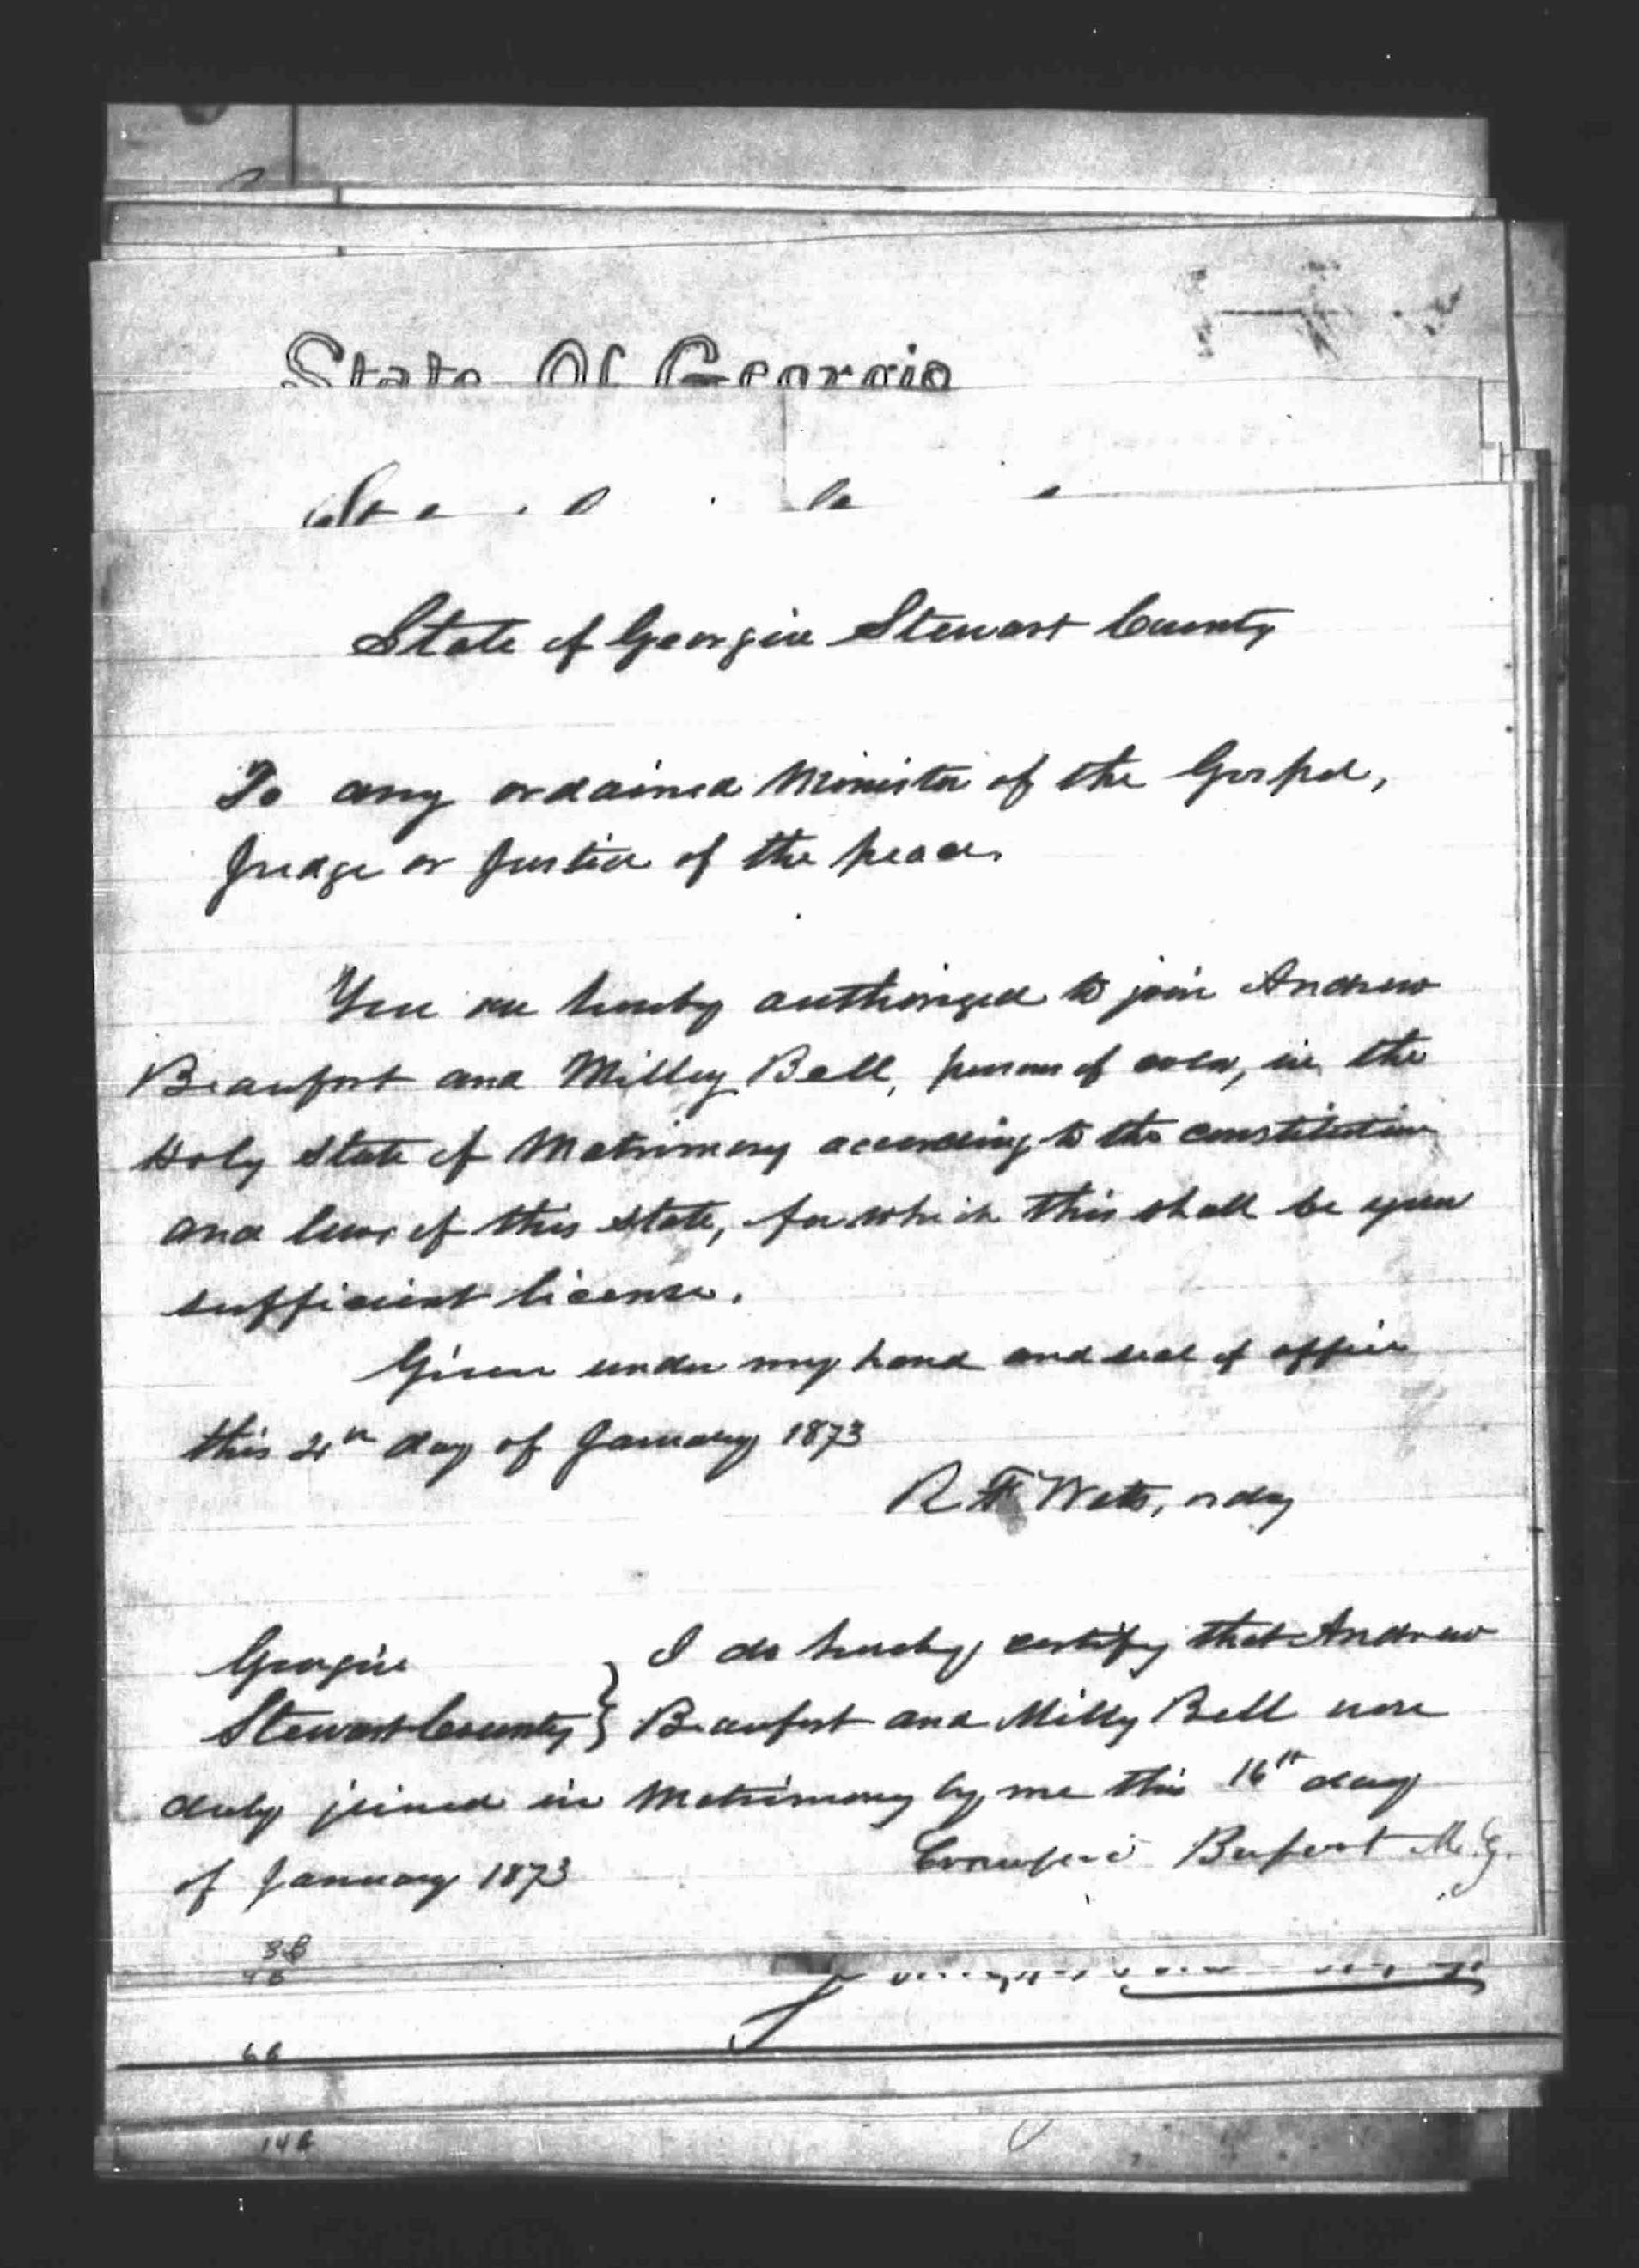 State Of Georgia
State of Georgia Stewart County
To any ordained Minister of the Gospel,
Judge or Justice of the peace.
You are hereby authorized to join Andrew
Beaufort and Milley Bell, persons of color, in the
Holy State of Matrimony according to the constitution
and laws of this State, for which this shall be your
sufficient license.
Given under my hand and seal of office
this day of January 1873
R F Watts, ordy
Georgia } I do hereby certify that Andrew
Stewart County } Beaufort and Milly Bell were
duly joined in Matrimony by me this 16th day
of January 1873 Bufort M.G.
3 B
4 B
6 B
14 B